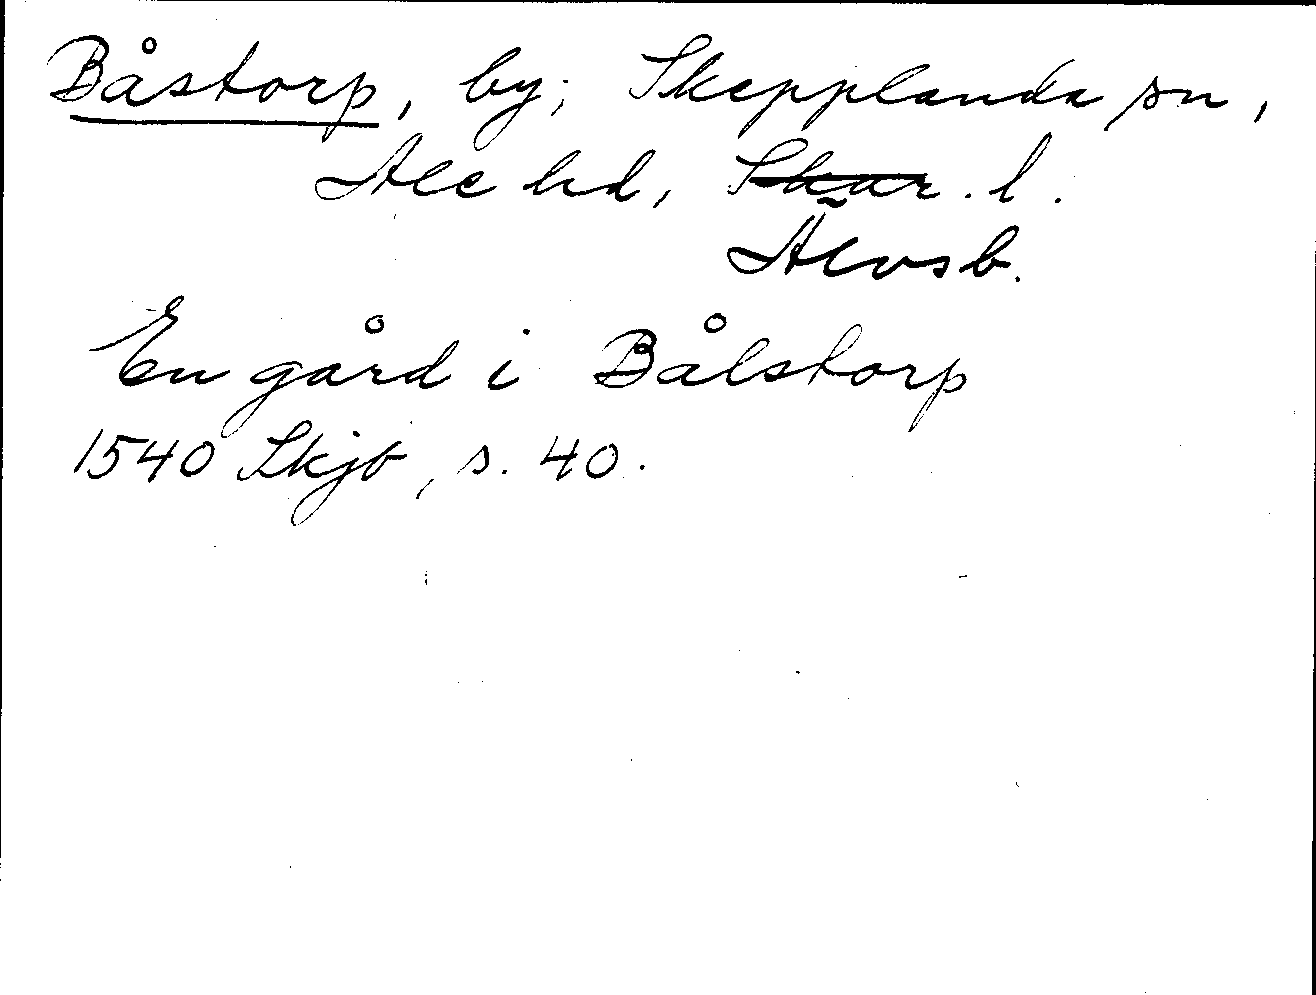 Båstorp, by; Skepplanda sn,
Ale hd, Skar. l.
Älvsb.
En gård i Bålstorp
1540 Skjb, s. 40.